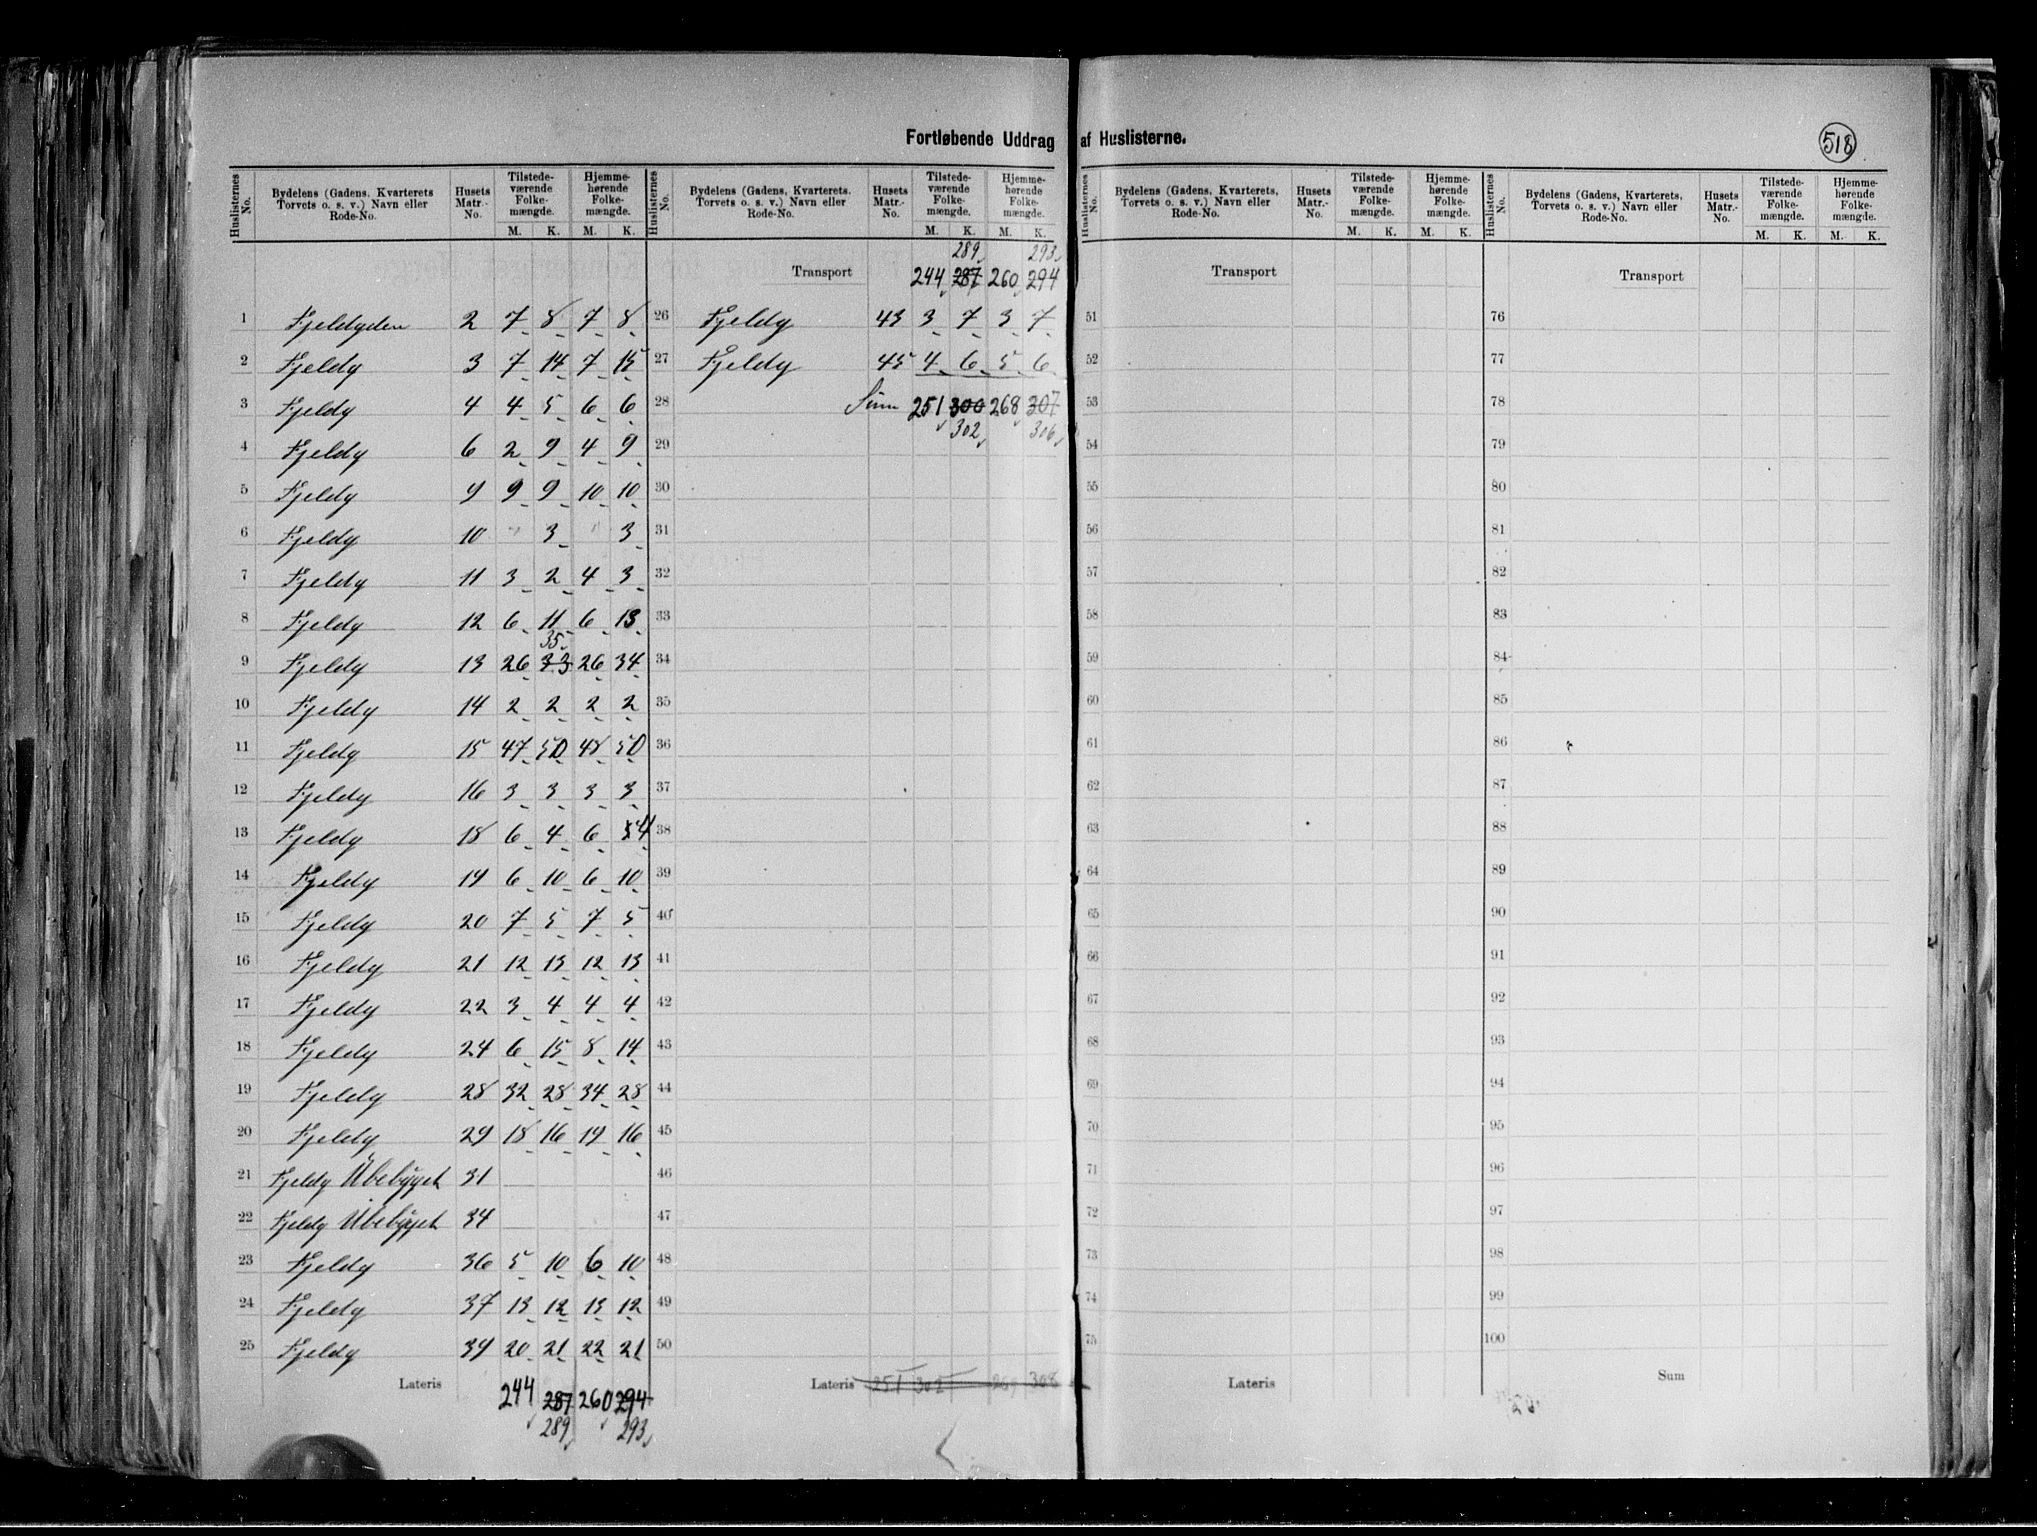 Fortløbende Uddrag af Huslisterne.
518
Huslisternes No. | Bydelens (Gadens, Kvarterets Torvets o. s. v.) Navn eller Rode-No. | Husets Matr.-No. | Tilstedeværende Folkemængde. M. K. | Hjemmehørende Folkemængde. M. K.
1 Fjeldgden 2 7 8 7 8
2 Fjeldg 3 7 14 7 15
3 Fjeldg 4 4 5 6 6
4 Fjeldg 6 2 9 4 9
5 Fjeldg 9 9 9 10 10
6 Fjeldg 10 3 3
7 Fjeldg 11 3 2 4 3
8 Fjeldg 12 6 11 6 13
35
9 Fjeldg 13 26 33 26 34
10 Fjeldg 14 2 2 2 2
11 Fjeldg 15 47 50 48 50
12 Fjeldg 16 3 3 3 3
13 Fjeldg 18 6 4 6 5 4
14 Fjeldg 19 6 10 6 10
15 Fjeldg 20 7 5 7 5
16 Fjeldg 21 12 13 12 13
17 Fjeldg 22 3 4 4 4
18 Fjeldg 24 6 15 8 14
19 Fjeldg 28 32 28 34 28
20 Fjeldg 29 18 16 19 16
21 Fjeldg Ubebygget 31
22 Fjeldg Ubebygget 34
23 Fjeldg 36 5 10 6 10
24 Fjeldg 37 13 12 13 12
25 Fjeldg 39 20 21 22 21
Lateris 244 287 260 294
289 293
Huslisternes No. | Bydelens (Gadens, Kvarterets. Torvets o. s. v.) Navn eller Rode-No. | Husets Matr.-No. | Tilstedeværende Folkemængde. M. K. | Hjemmehørende Folkemængde. M. K.
289 293
Transport 244 287 260 294
26 Fjeldg 43 3 7 3 7
27 Fjeldg 45 4 6 5 6
28 Sum 251 300 268 307
302 306
29
30
31
32
33
34
35
36
37
38
39
40
41
42
43
44
45
46
47
48
49
50
Lateris 251 302 308
Huslisternes No. | Bydelens (Gadens, Kvarterets, Torvets o. s. v.) Navn eller Rode-No. | Husets Matr.-No. | Tilstedeværende Folkemængde. M. K. | Hjemmehørende Folkemængde. M. K.
Transport
51
52
53
54
55
56
57
58
59
60
61
62
63
64
65
66
67
68
69
70
71
72
73
74
75
Lateris
Huslisternes No. | Bydelens (Gadens, Kvarterets, Torvets o. s. v.) Navn eller Rode-No. | Husets Matr.-No. | Tilstedeværende Folkemængde. M. K. | Hjemmehørende Folkemængde. M. K.
Transport
76
77
78
79
80
81
82
83
84
85
86
87
88
89
90
91
92
93
94
95
96
97
98
99
100
Sum